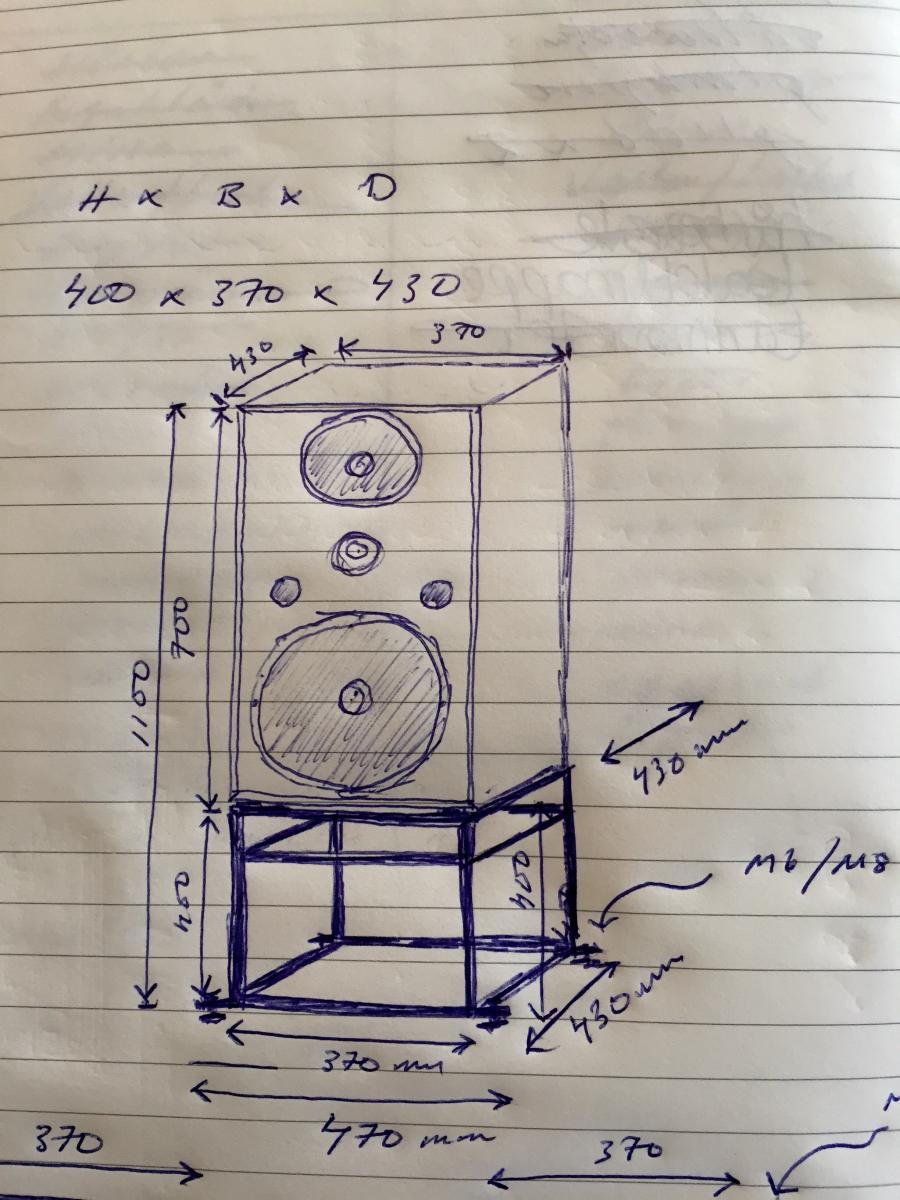 H x B x D
400 x 370 x 430
430
370
700
1100
430 mm
M6/M8
400
400
430 mm
370 mm
470 mm
370
370